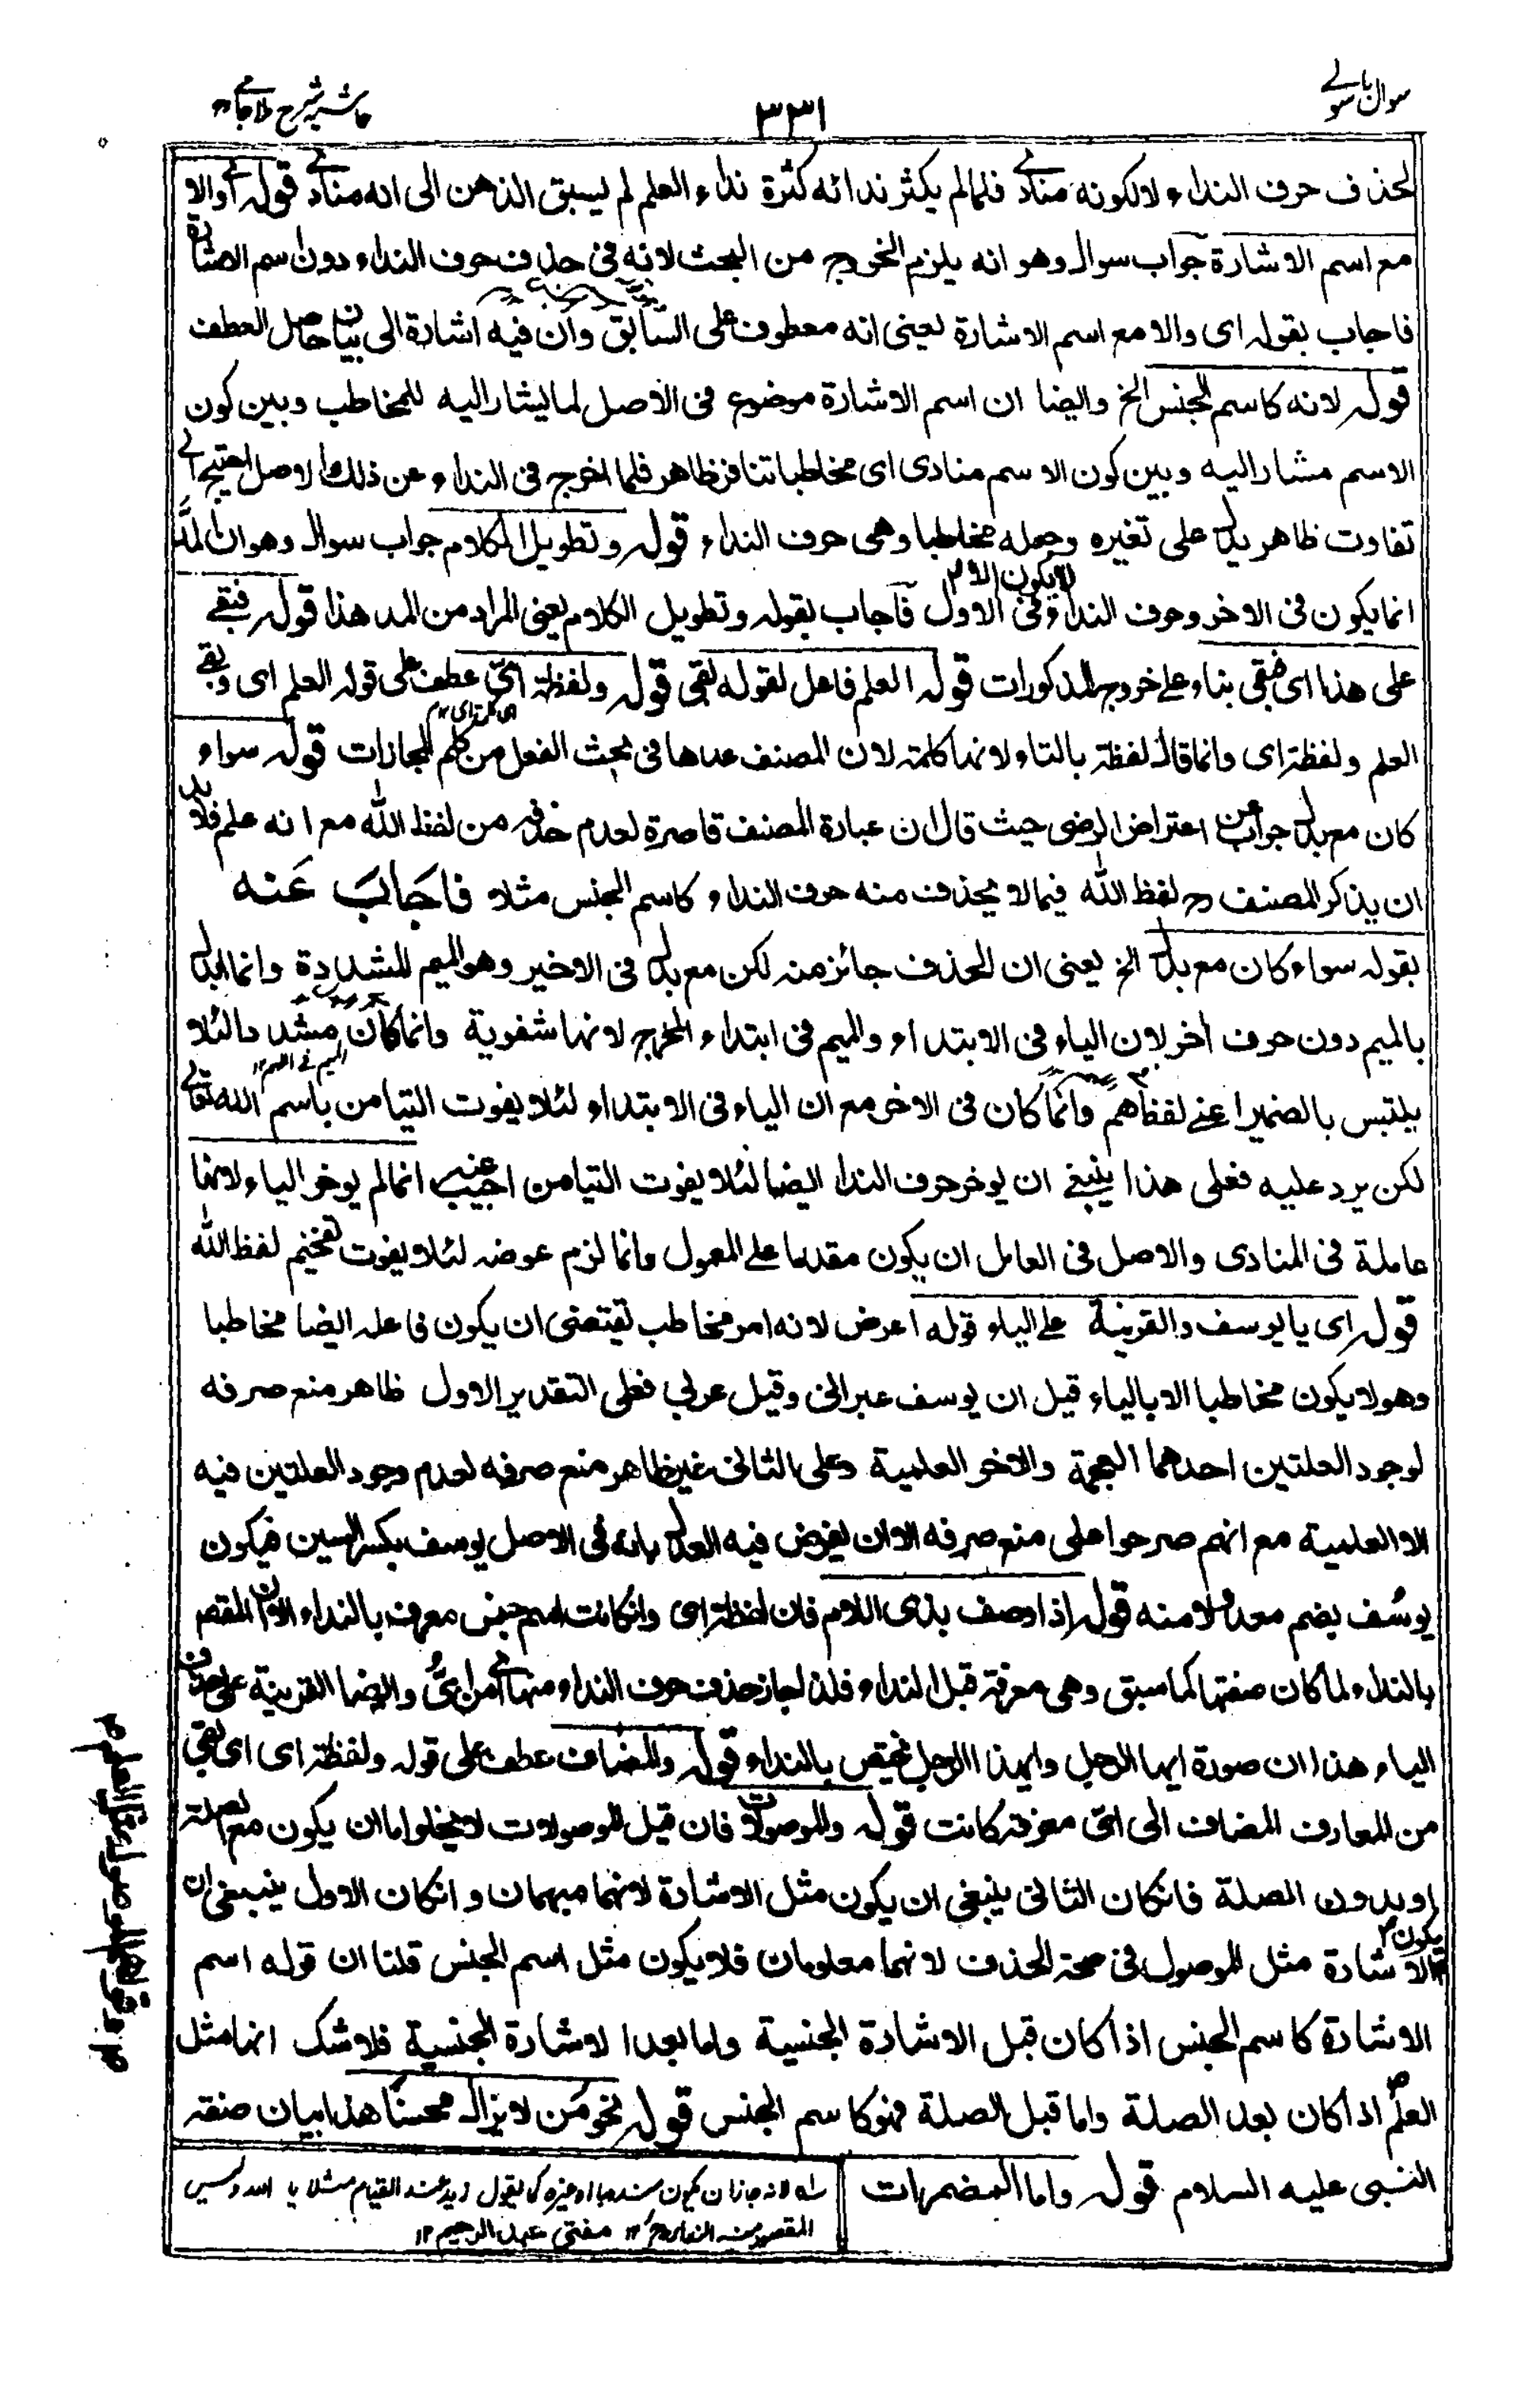 سوال باسولے
٣٣١
حاشیہ شرح ملا جامے
لحذف حرف النداء لا لكونه منادى فلما لم يكثر ندائه كثرة نداء العلم لم يسبق الذهن الى انه منادى قوله اى والا
مع اسم الاشارة جواب سوال وهو انه يلزم الخروج من البحث لانه فى حذف حرف النداء دون اسم الاشارة
فاجاب بقوله اى والا مع اسم الاشارة يعنى انه معطوف على السابق وان فيه اشارة الى بيان حاصل العطف
قوله لانه كاسم الجنس الخ وايضا ان اسم الاشارة موضوع فى الاصل لما يشار اليه للمخاطب وبين كون
الاسم مشارا اليه وبين كون الاسم منادى اى مخاطبا تنافر ظاهر فلما اخرج فى النداء عن ذلك الاصل احتيج الى
تفاوت ظاهر يدل على تغيره وجعله مخاطبا وهى حرف النداء قوله وتطويل الكلام جواب سوال وهو ان المد
لا يكون الا
انما يكون فى الاخر وحرف النداء فى الاول فاجاب بقوله وتطويل الكلام يعنى المراد من المد هذا قوله فبقى
على هذا اى فبقى بناء على خروج المذكورات قوله العلم فاعل لقوله بقى قوله ولفظة اىّ عطف على قوله العلم اى وبقى
العلم ولفظة اى وانما قال لفظة بالتاء لانها كلمة لان المصنف عدها فى بحث الفعل من كلم المجازات قوله سواء
كان مع بدل جواب عن اعتراض الرضى حيث قال ان عبارة المصنف قاصرة لعدم حذفه من لفظ الله مع انه علم فلابد
ان يذكر المصنف رح لفظ الله فيما لا يحذف منه حرف النداء كاسم الجنس مثلا فاجاب عنه
بقوله سواء كان مع بدل الخ يعنى ان الحذف جائز منه لكن مع بدل فى الاخير وهو الميم المشددة وانما ابدل
بالميم دون حرف اخر لان الياء فى الابتداء والميم فى ابتداء المخرج لانها شفوية وانما كان مشددا لئلا
يلتبس بالضمير اعنى لفظ هم وانما كان فى الاخر مع ان الياء فى الابتداء لئلا يفوت التيامن باسم الله تعالى
لكن يرد عليه فعلى هذا ينبغى ان يوخر حرف النداء ايضا لئلا يفوت التيامن اجيب عنه انما لم يوخر الياء لانها
عاملة فى المنادى والاصل فى العامل ان يكون مقدما على المعمول وانما لزم عوضه لئلا يفوت تفخيم لفظ الله
قوله اى يا يوسف والقرينة على الياء قوله اعرض لانه امر مخاطب يقتضى ان يكون فاعله ايضا مخاطبا
وهو لا يكون مخاطبا الا بالياء قيل ان يوسف عبرانى وقيل عربى فعلى التقدير الاول ظاهر منع صرفه
لوجود العلتين احدهما العجمة والاخر العلمية وعلى الثانى غير ظاهر منع صرفه لعدم وجود العلتين فيه
الا العلمية مع انهم صرحوا على منع صرفه الا ان يفرض فيه العدل بانه فى الاصل يوسف بكسر السين فيكون
يوسُف بضم معدولا منه قوله اذا وصف بذى اللام فان لفظة اى وان كانت اسم جنس معرف بالنداء الا ان المقصود
بالنداء لما كان صفتها كما سبق وهى معرفة قبل النداء فلذا جاز حذف حرف النداء منها اى من اىُّ وايضا القرينة على حذف
الياء هذا ان صورة ايها الرجل وايهذا الرجل مختص بالنداء قوله والمضاف عطف على قوله ولفظة اى اى بقى
من المعارف المضاف الى اىّ معرفة كانت قوله والموصولات فان قيل الموصولات لا يخلو اما ان يكون مع الصلة
او بدون الصلة فان كان الثانى ينبغى ان يكون مثل الاشارة لانهما مبهمان وان كان الاول ينبغى ان
يكون
الاشارة مثل الموصول فى صحة الحذف لانهما معلومان فلا يكون مثل اسم الجنس قلنا ان قوله اسم
الاشارة كاسم الجنس اذا كان قبل الاشارة الجنسية واما بعد الاشارة الجنسية فلا شك انها مثل
العلم اذا كان بعد الصلة واما قبل الصلة فهو كاسم الجنس قوله نحو من لا يزال محسنا هذا بيان صفة
النبى عليه السلام قوله واما المضمرات
لانه جاز ان يكون مندوبا او غيره كما يقول زيد عند القيام مثلا يا الله وليس
المقصود منه النداء مفتى عبد الرحيم ١٢